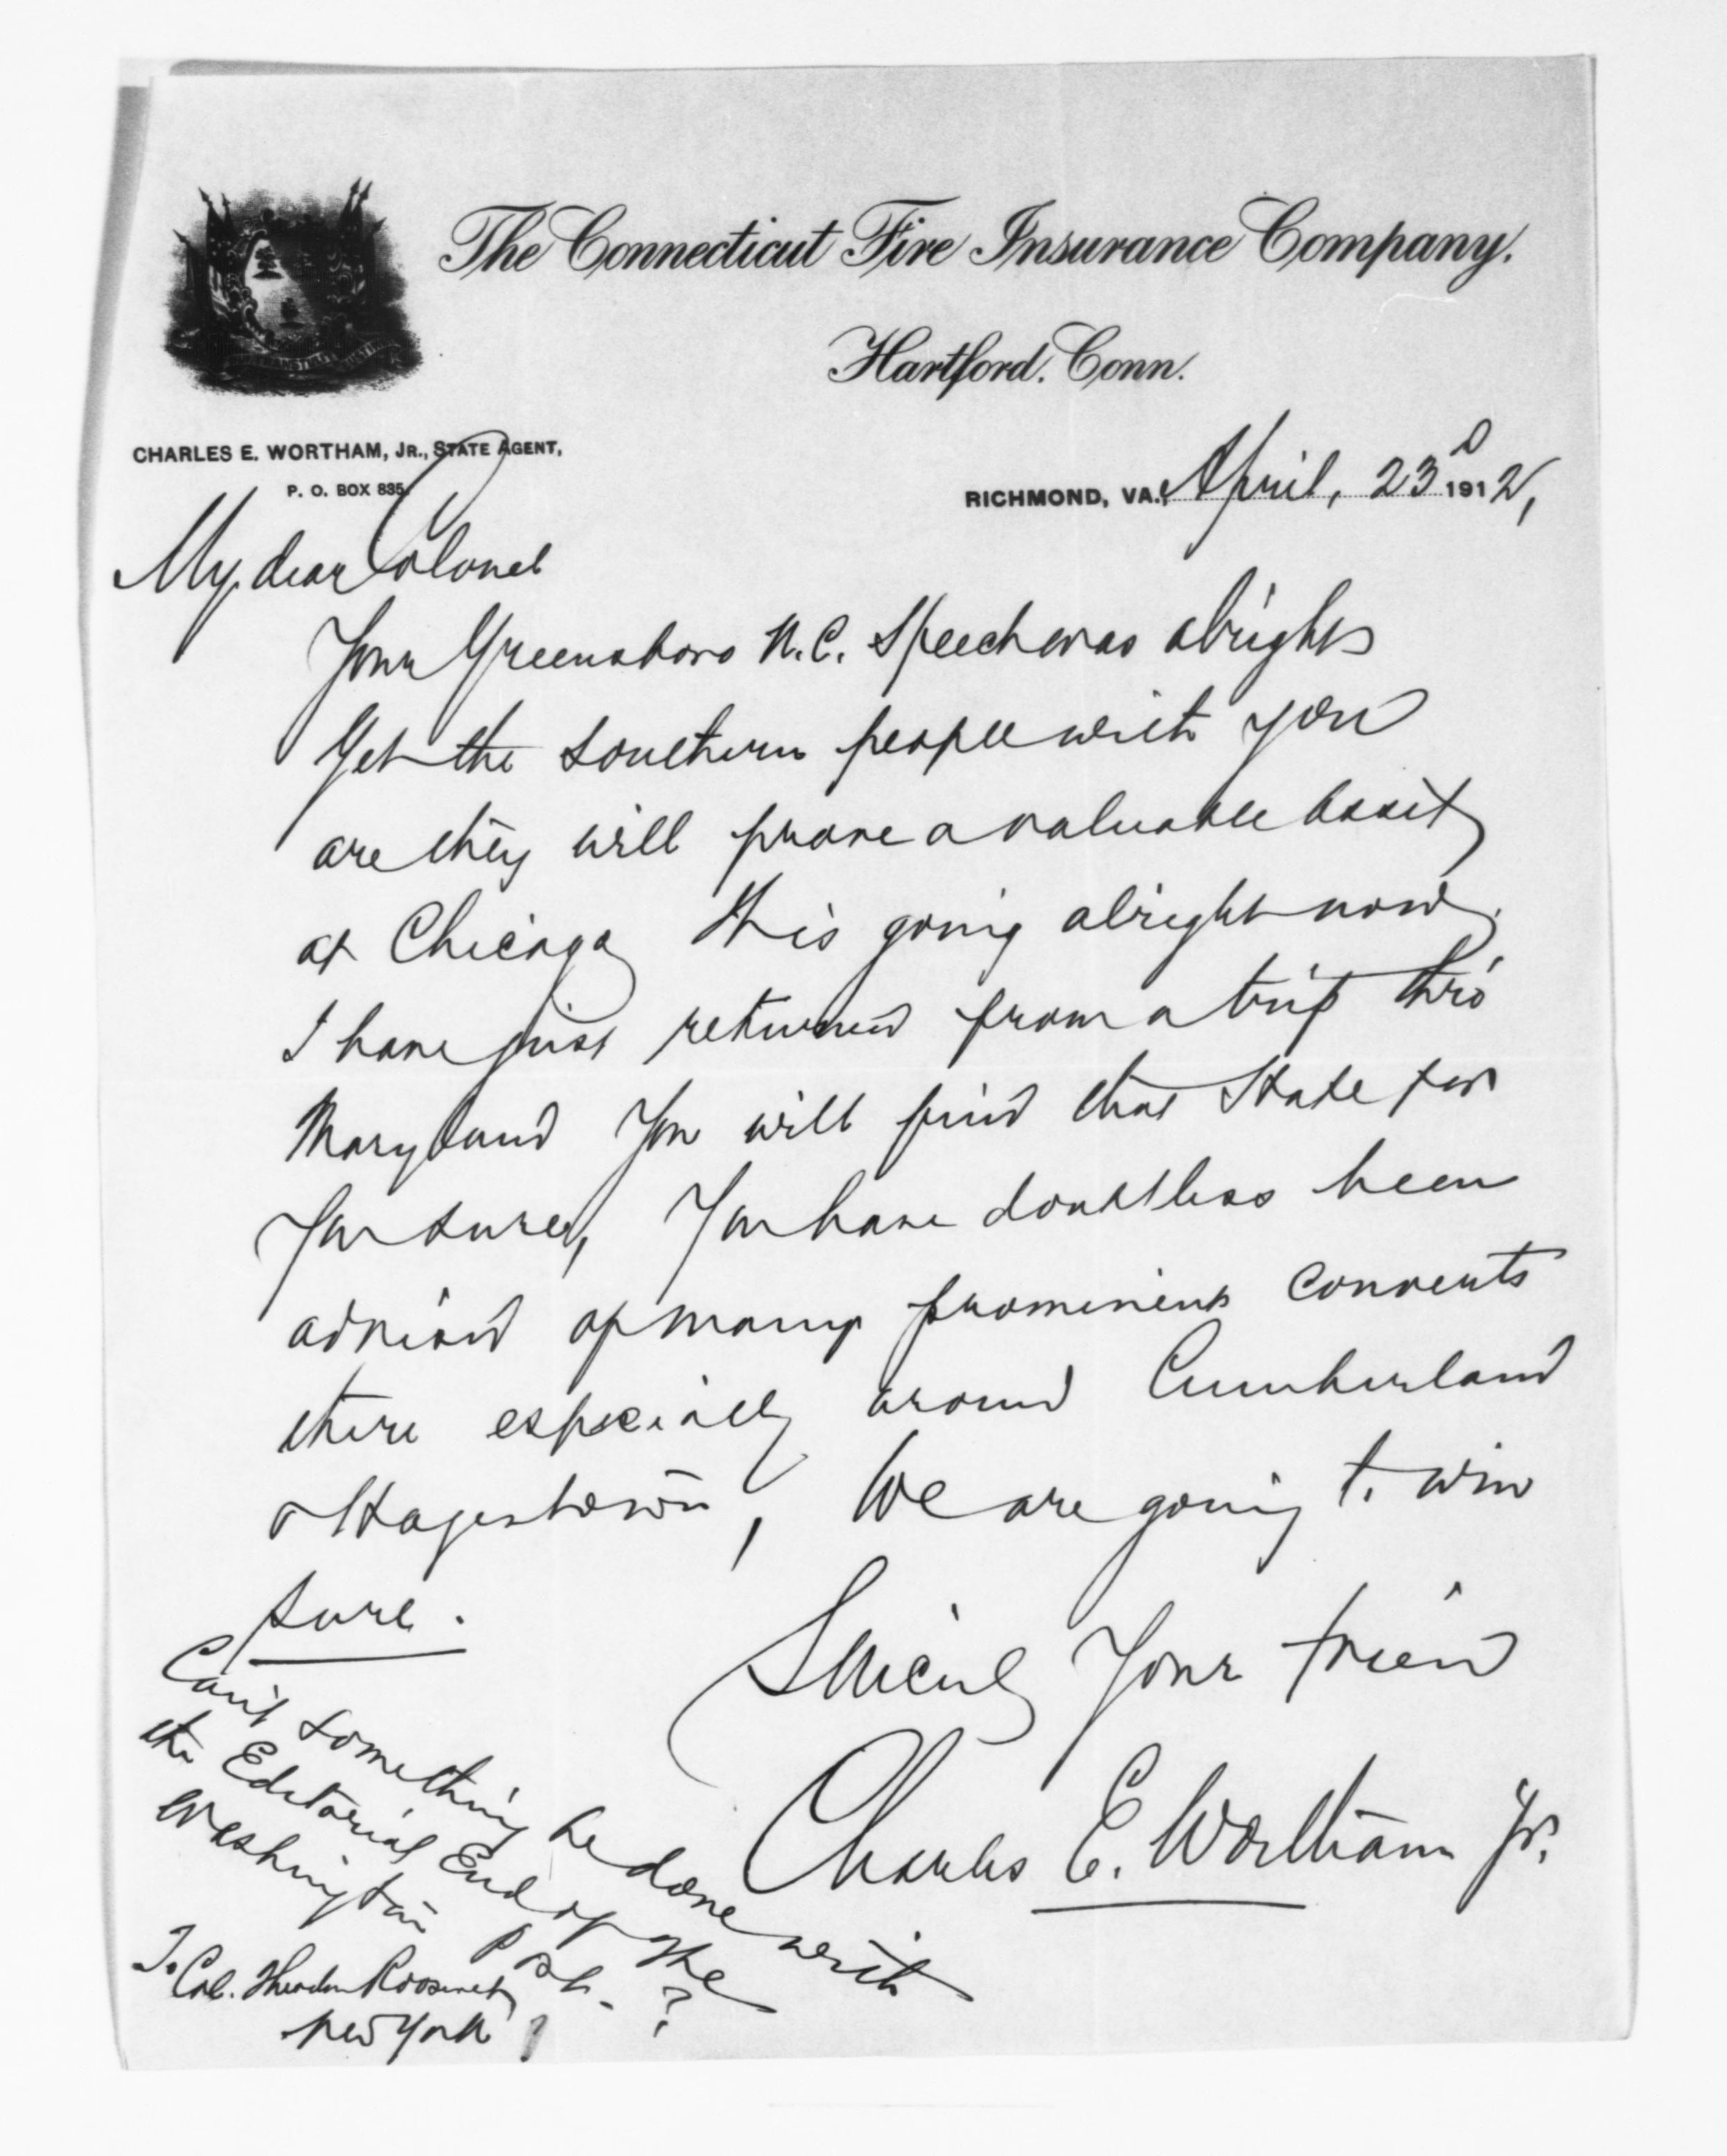 The Connecticut Fire Insurance Company.
Hartford. Conn.
CHARLES E. WORTHAM, JR., STATE AGENT,
P. O. BOX 835.
RICHMOND, VA., April, 23d 1912,
My dear Colonel
Your Greensboro N.C. Speech was alright
Get the Southern people with you
are they will prove a valuable asset
at Chicago It is going alright now.
I have just returned from a trip thro'
Maryland You will find that State for
You sure, You have doubtless been
advised of many prominent converts
there especially around Cumberland
& Hagerstown, We are going to win
sure.
Sincerely Your friend
Charles E. Wortham Jr.
Can't something be done with
the Editorial End of the
Washington Post. ?
To Col. Theodore Roosevelt
New York